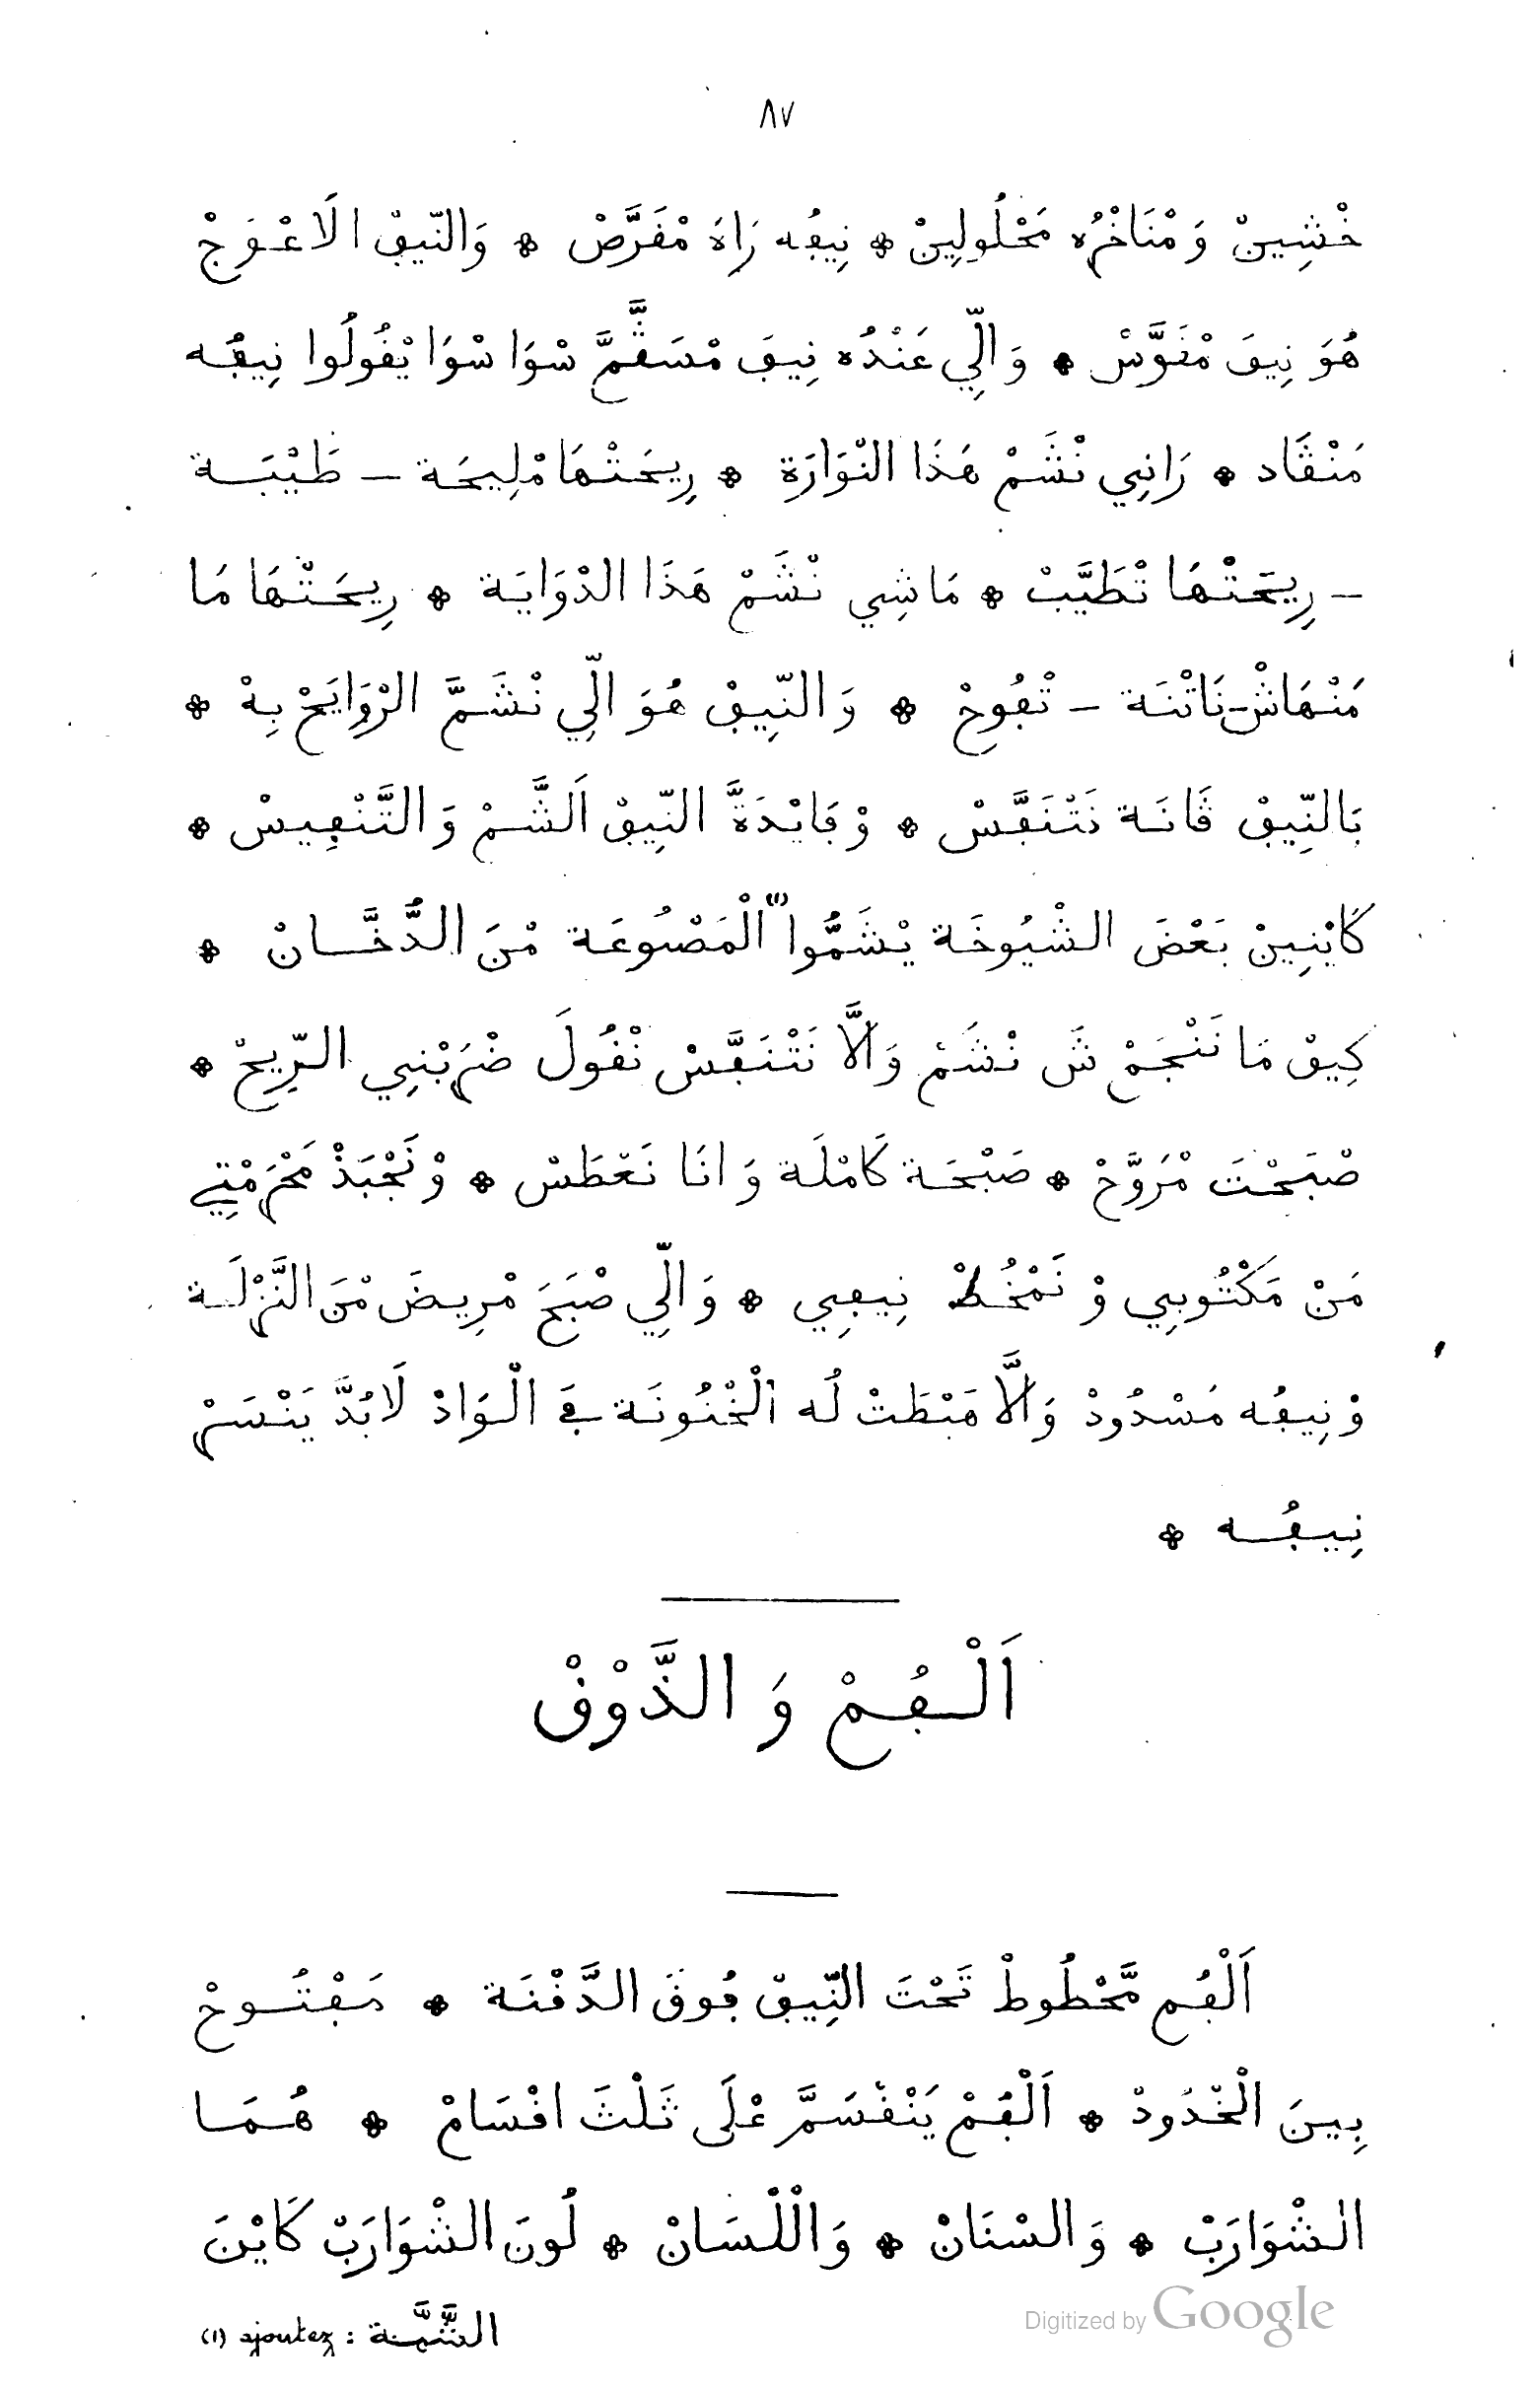 ٨٧
خْشِينْ وَمْنَاخْرُه مَحْلُولِينْ * نِيڢُه رَاهَ مْڧَرَّصْ * وَالنِّيڢْ الَاعْوَجْ
هُوَ نِيڢَ مْڧَوَّسْ * وَالِّي عَنْدُه نِيڢَ مْسَڨَّمَّ سْوَا سْوَا يْڧُولُوا نِيڢُه
مَنْڨَاد * رَانِي نْشَمْ هَذَا النْوَارَة * رِيحَتْهَا مْلِيحَة - طَيْبَة
- رِيحَتْهَا تْطَيَّبْ * مَاشِي نْشَمْ هَذَا الدْوَايَة * رِيحَتْهَا مَا
مَنْهَاشْ - نَاتْنَة - تْڢُوحْ * وَالنِّيڢْ هُوَ الِّي نْشَمَّ الرْوَايَحْ بِهْ *
بَالنِّيڢْ ڨَانَة نَتْنَڢَّسْ * وْڢَايْدَةَّ النِّيڢْ اَلشَّمْ وَالتَّنْڢِيسْ *
كَايْنِينْ بَعْضَ الشْيُوخَة يْشَمُّوا (١) اَلْمَصْنُوعَة مْنَ الدُّخَّانْ *
كِيڢْ مَا نَنْجَمْ شَ نْشَمْ وَالَّا نَتْنَڢَّسْ نْڧُولَ ضْرَبْنِي الرِّيحْ *
صْبَحْتَ مْرَوَّحْ * صَبْحَة كَامْلَة وَانَا نَعْطَسْ * وْنَجْبَذْ مَحْرَمْتِي
مَنْ مَكْتُوبِي وْنَمْخُطْ نِيڢِي * وَالِّي صْبَحَ مْرِيضَ مْنَ النَّزْلَة
وْنِيڢُه مَسْدُودْ وَالَّا هَبْطَتْ لُه اَلْخْنُونَة ڢِي الْوَادْ لَابُدَّ يَنْسَرْ
نِيڢُه *
اَلْڢُمْ وَالذَّوْڧْ
اَلْڢُم مَّحْطُوطْ تَحْتَ النِّيڢْ ڢُوڧَ الدَّڧْنَة * مَڢْتُوحْ
بِينَ الْخْدُودْ * اَلْڢُمْ يَنْڧْسَمَّ عْلَى ثَلْثَ اڧْسَامْ * هُمَا
الشْوَارَبْ * وَالسْنَانْ * وَاللْسَانْ * لُونَ الشْوَارَبْ كَايْنَ
(1) ajoutez : الشَّمَّة
Digitized by Google